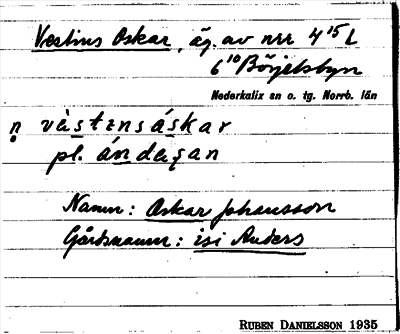 Vestins Oskar, äg. av nrr 4¹⁵ L
6¹⁰ Börjelsbyn
Nederkalix sn o. tg. Norrb. län
n västensáskar
pl. ándagan
Namn: Oskar Johansson
Gårdsnamn: isi Anders
RUBEN DANIELSSON 1935